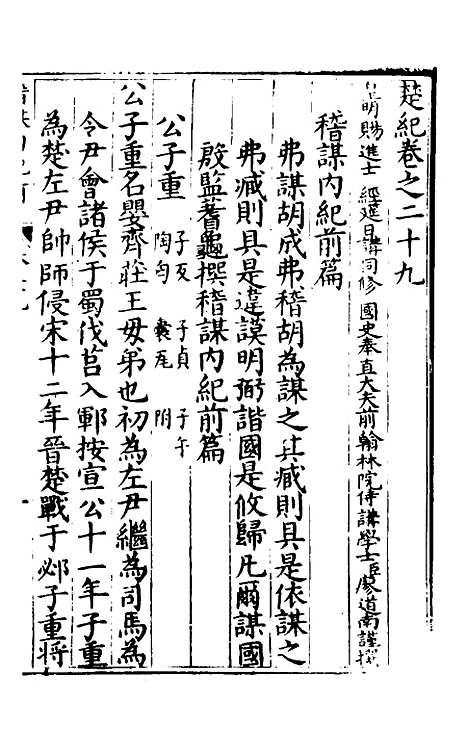 楚紀卷之二十九
皇明賜進士經筵日講同修國史奉直大夫前翰林院侍講學士臣廖道南謹撰
稽謀內紀前篇
弗謀胡成弗稽胡為謀之其臧則具是依謀之
弗臧則具是違謨明弼諧國是攸歸凡爾謀國
殷監蓍龜撰稽謀內紀前篇
公子重 子反 子貞 子午
陶匄 囊瓦 附
公子重名嬰齊莊王毋弟也初為左尹繼為司馬為
令尹會諸侯于蜀伐莒入鄆按宣公十一年子重
為楚左尹帥師侵宋十二年晉楚戰于邲子重將